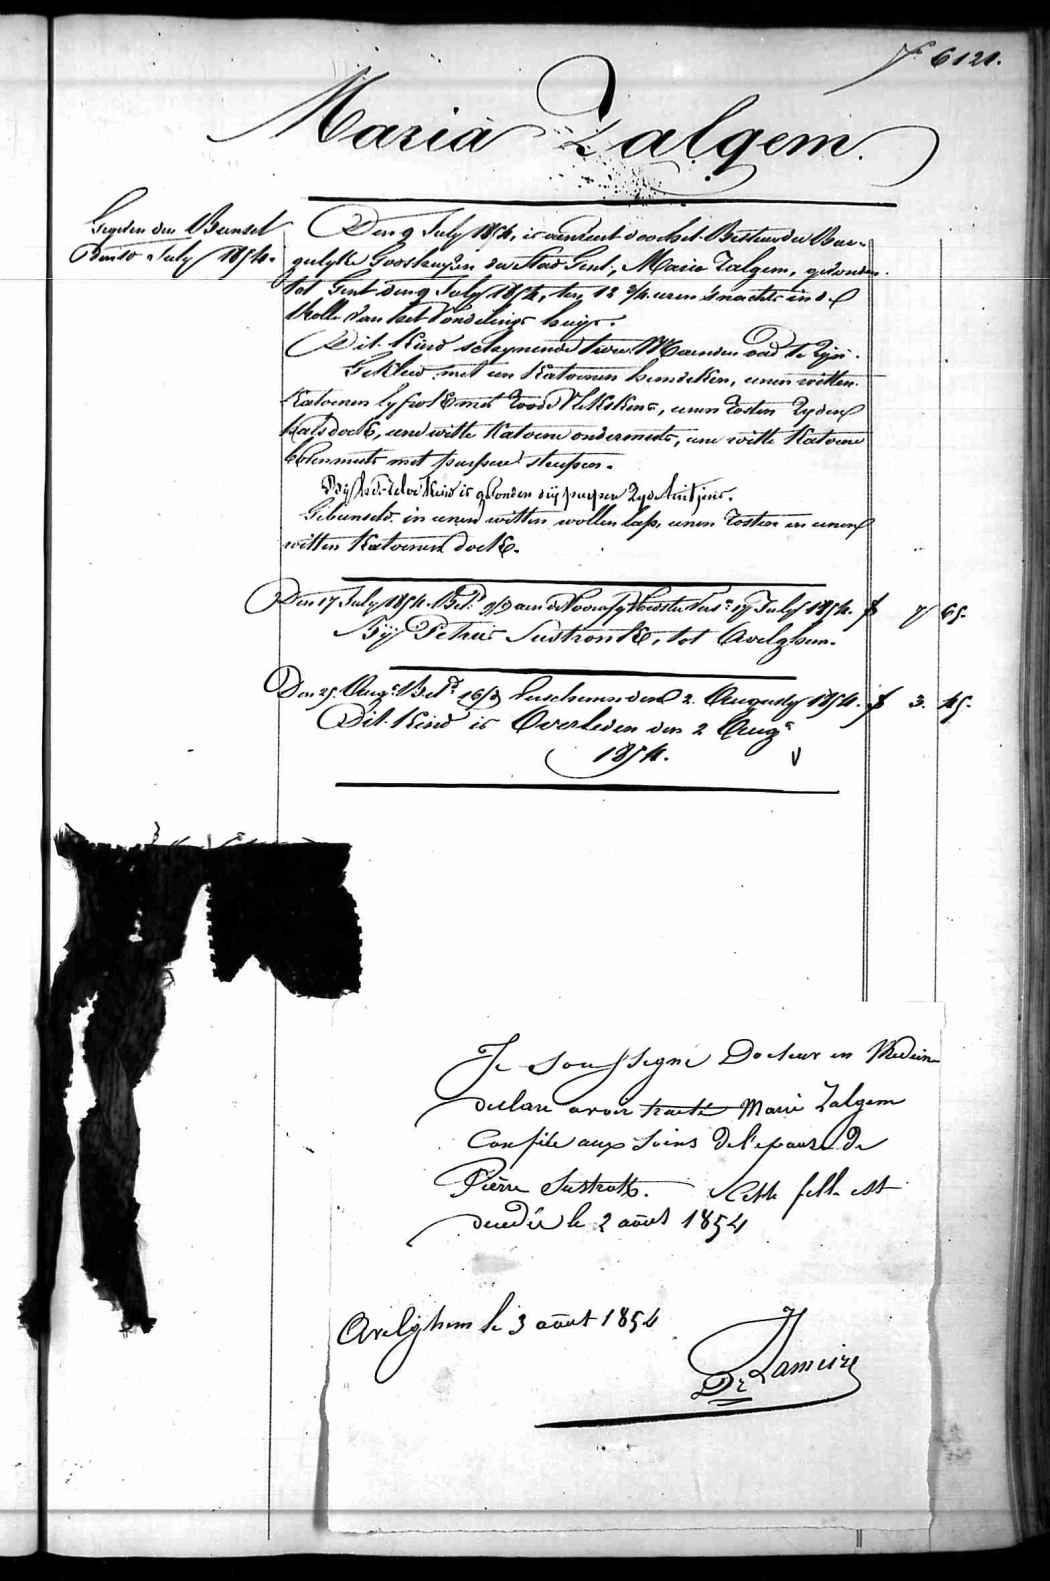 N° 6121.
Maria Zalgem.
Gegeven den Bunsel
den 10 July 1854.
Den 9 July 1854, is aenveert door het Bestuer der Bur-
gelyke Godshuyzen der Stad Gent, Maria Zalgem, gevonden
tot Gent den 9 July 1854, ten 12 3/4 uren 's nachts in de
Rolle van het Vondelings huys.
Dit Kind schynende twee Maenden oud te zyn.
Gekleed met een Katoenen hemdeken, eenen witten
Katoenen lyfrok met roode Vlekskens, eenen rosten zyden
halsdoek, eene witte Katoene ondermuts, eene witte Katoene
bovenmuts met purpere streepen.
By het-zelve Kind is gevonden dry purper zyde lintjens.
Gebunseld in eenen witten wollen lap, eenen rosten en eenen
witten Katoenen doek.
Den 17 July 1854. Bet. aen de Voorsz Voedster Vers. 17 July 1854. f 7 65.
By Petrus Sustronk, tot Avelghem.
Den 25 Augt. Bet. 16/3 Verschenen den 2 Augusty 1854. f 3. 45.
Dit Kind is Overleden den 2 Augt
1854.
Je soussigné Docteur en Medecine
declare avoir traité Marie Zalgem
Confiée aux soins de l'epouse de
Pierre Sustronk. Cette fille est
decedée le 2 août 1854
Avelghem le 3 août 1854
Dr Lameire